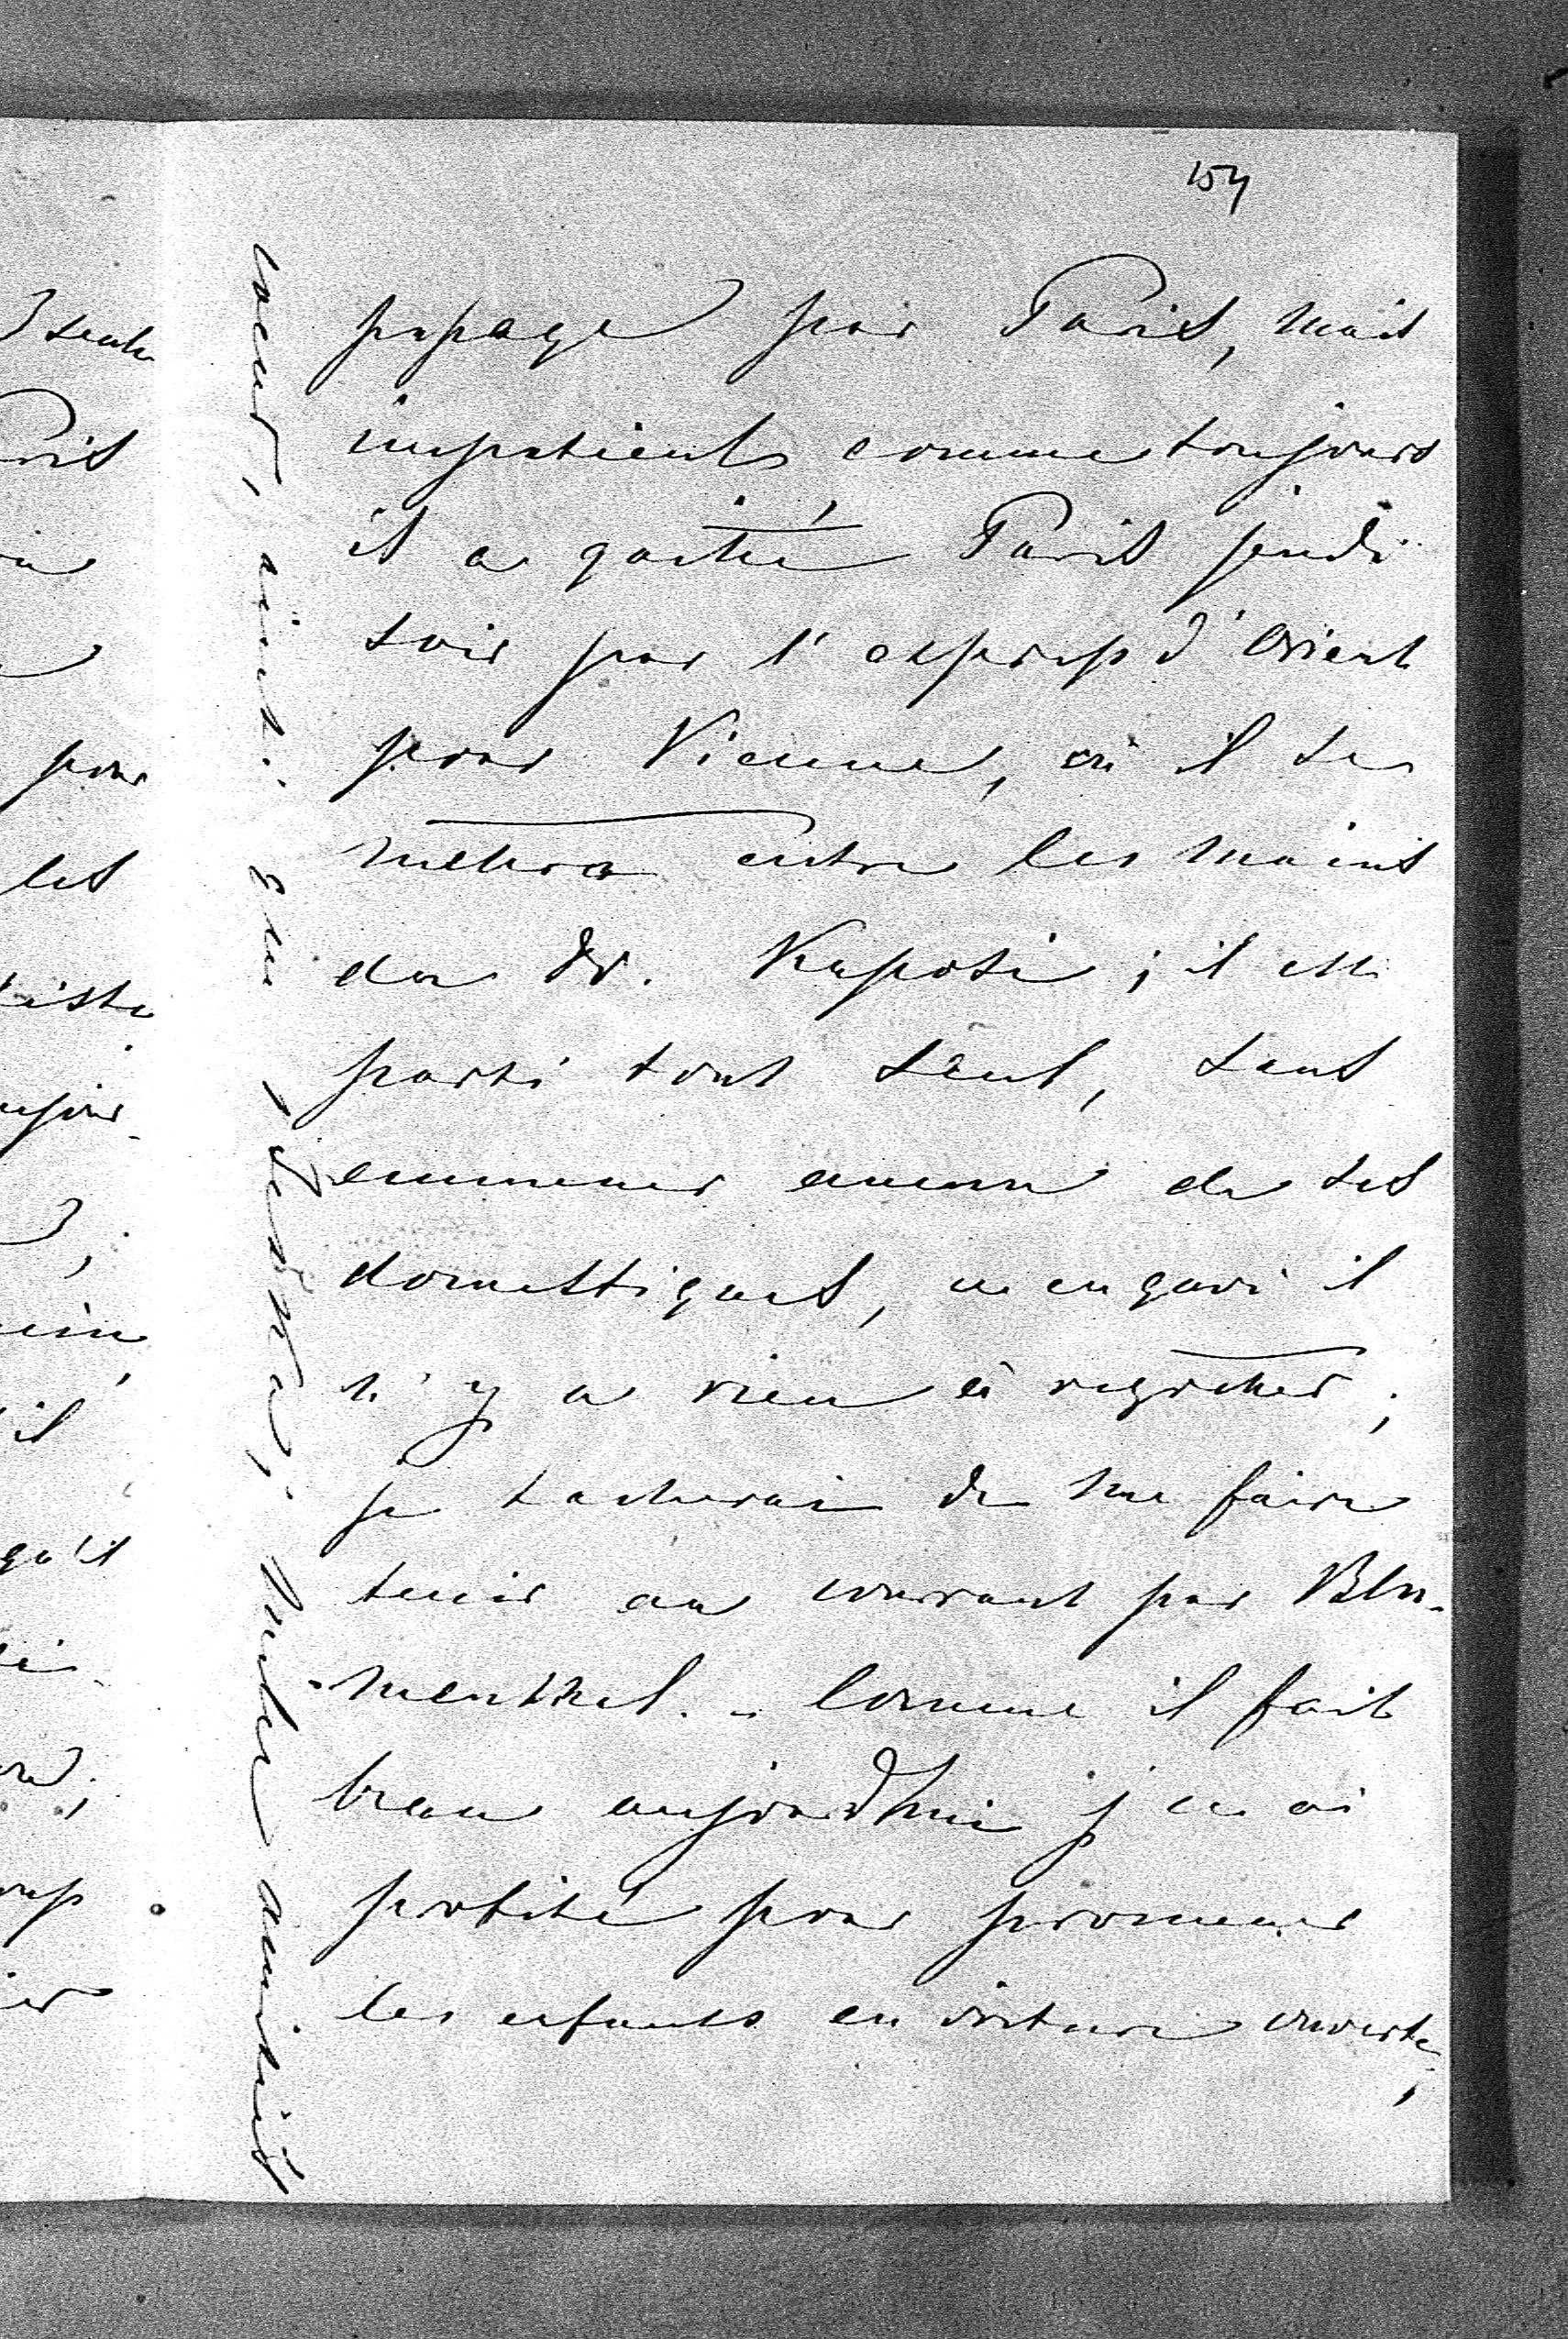 154
passage par Paris, mais
impatient comme toujours
il a quitté Paris jeudi
soir par l'express d'Orient
pour Vienne, où il se
mettra entre les mains
du Dr. Kaposi; il est
parti tout seul, sans
emmener aucun de ses
domestiques, ce en quoi il
n'y a rien à regretter;
je tacherai de me faire
tenir au courant par Blu-
-menthal. - Comme il fait
beau aujourd'hui j'en ai
profité pour promener
les enfants en voiture ouverte,
coeur, ainsi que
Mille amitiés
Paris
pour
les
qu'il